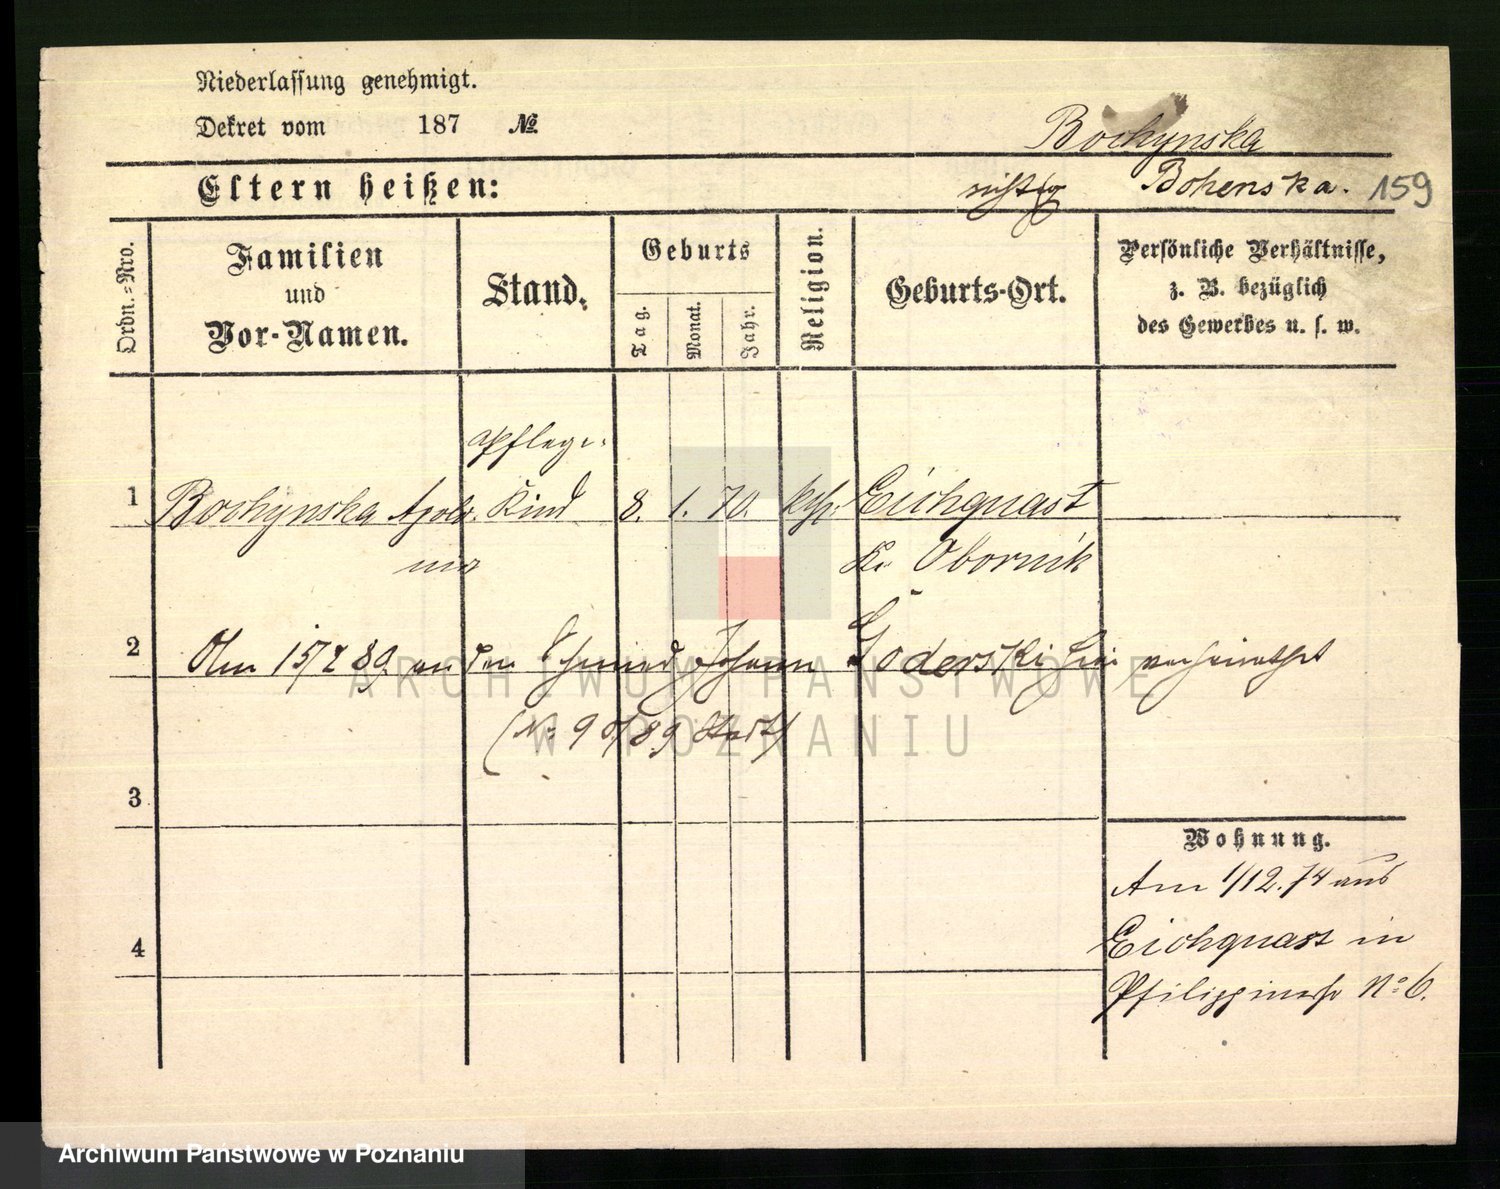 Niederlassung genehmigt.
Dekret vom 187 №
Bochynska
Eltern heißen:
richtig Bohenska. 159
Ordn.-Nro.
Familien und Vor-Namen.
Stand.
Geburts
Tag.
Monat.
Jahr.
Religion.
Geburts-Ort.
Persönliche Verhältnisse,
z. B. bezüglich
des Gewerbes u. s. w.
Pflege-
1 Bochynska Apolo- Kind 8. 1. 70. kth. Eichquast
nia Kr Obornik
2 Am 15/2 89 an den Schmied Johann Goderski hier verheirathet
(No 90/89 Stadt)
3
Wohnung.
Am 1/12.74 aus
4 Eichquast in
Philippinestr No 6.
ARCHIWUM PAŃSTWOWE
W POZNANIU
Archiwum Państwowe w Poznaniu